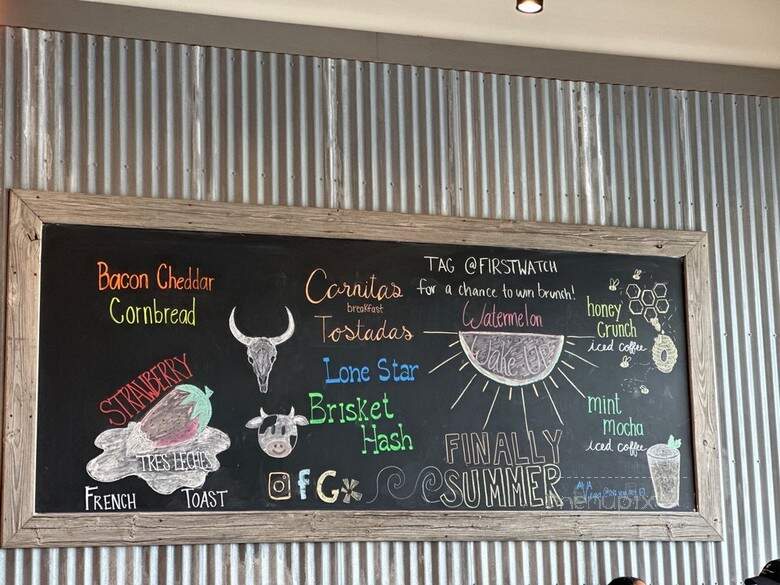 Bacon Cheddar
Cornbread
STRAWBERRY
TRES LECHES
FRENCH TOAST
Carnitas
breakfast
Tostadas
Lone Star
Brisket
Hash
f G
TAG @FIRSTWATCH
for a chance to win brunch!
Watermelon
Wake Up
FINALLY
SUMMER
honey
crunch
iced coffee
mint
mocha
iced coffee
menupix